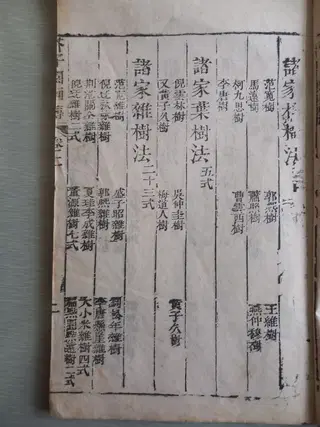 諸家 樹法
范寬樹 郭熙樹 王維樹
馬遠樹 蕭照樹 燕仲穆樹
柯九思樹 曹雲西樹
李唐樹
諸家葉樹法 五式
倪雲林樹 吳仲圭樹 黃子久樹
又黃子久樹 梅道人樹
諸家雜樹法 二十三式
范寬雜樹 盛子昭雜樹 劉松年雜樹
倪雲林雜樹 郭熙雜樹 李唐懸崖雜樹
荆浩關仝雜樹 夏珪李成雜樹 大小米雜樹四式
雜樹二式 董源雜樹七式
芥子園畫傳